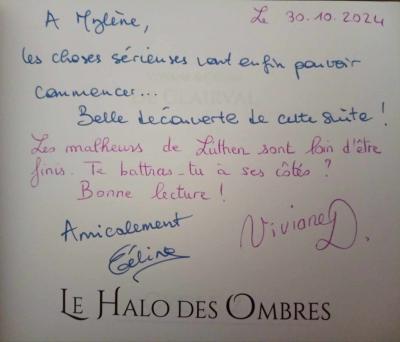 A Mylène,
Le 30.10.2024
les choses sérieuses vont enfin pouvoir
commencer...
Belle découverte de cette suite !
Les malheurs de Lüthen sont loin d'être
finis. Te battras-tu à ses côtés ?
Bonne lecture !
Amicalement
Céline
Viviane D.
LE HALO DES OMBRES